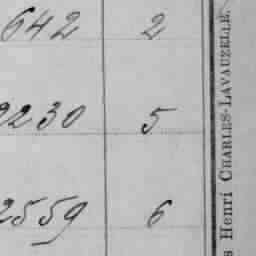 642 2
2230 5
2559 6
s Henri CHARLES-LAVAUZELLE.